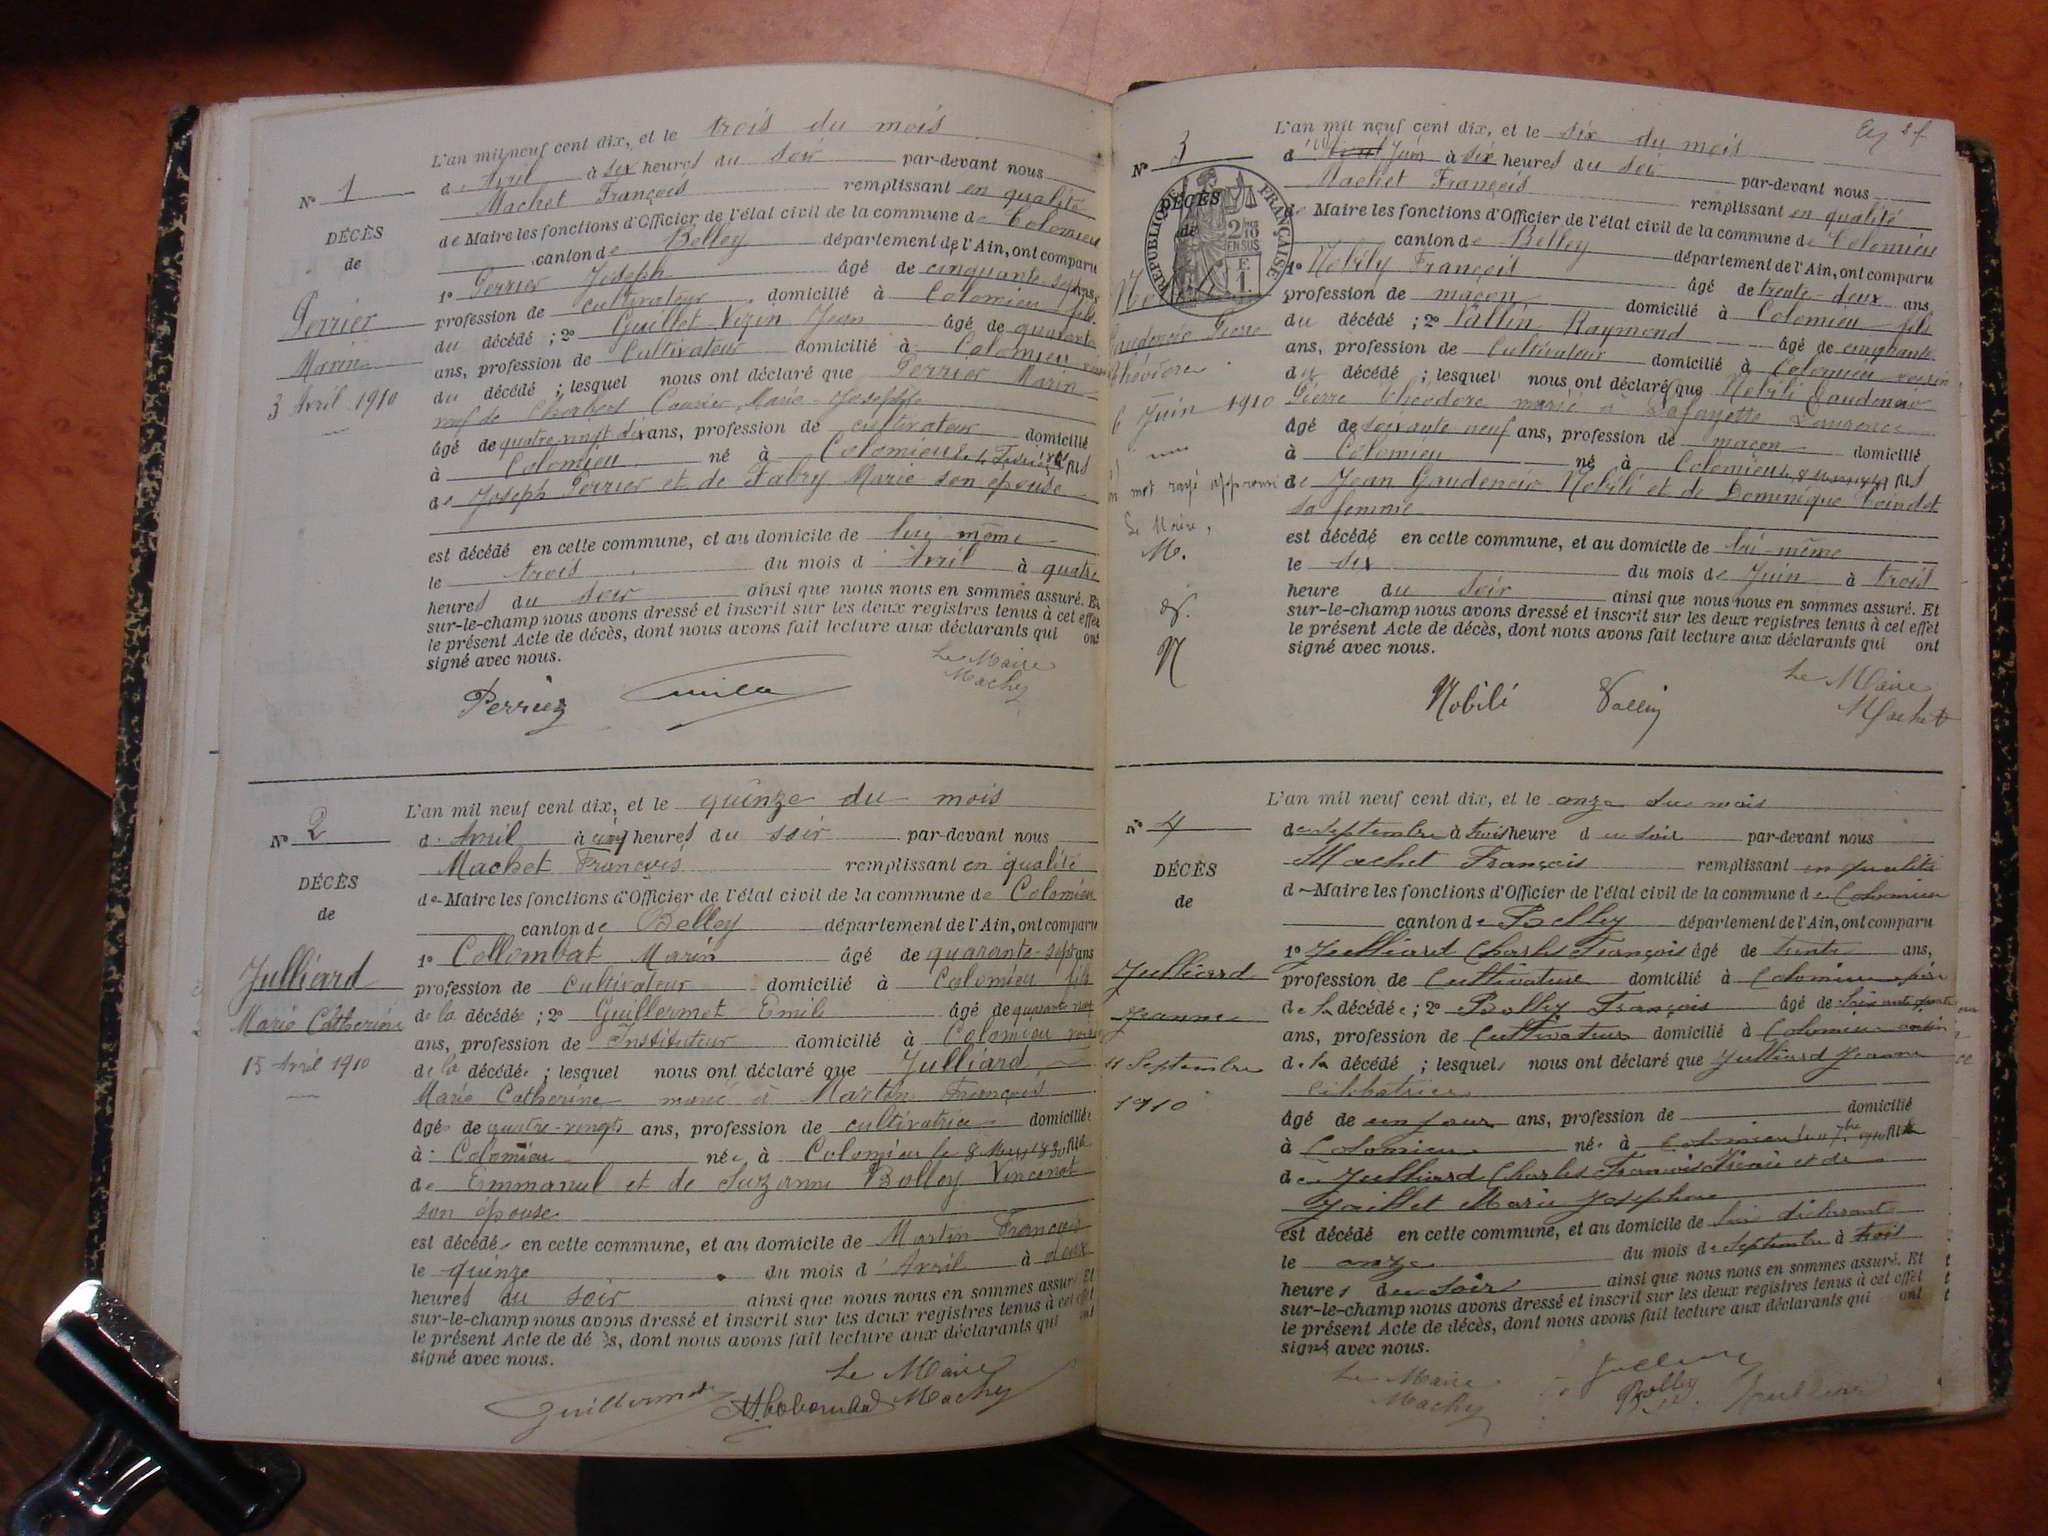 N° 1
DÉCÈS
de
Perrier
Marin
3 Avril 1910
L'an mil neuf cent dix, et le trois du mois
d' Avril à six heures du soir par-devant nous
Machet François remplissant en qualité
de Maire les fonctions d'Officier de l'état civil de la commune de Colomieu
canton de Belley département de l'Ain, ont comparu
1° Perrier Joseph âgé de cinquante-sept ans,
profession de cultivateur domicilié à Colomieu fils
du décédé ; 2° Guillet Vezin Jean âgé de quarante
ans, profession de Cultivateur domicilié à Colomieu
du décédé ; lesquels nous ont déclaré que Perrier Marin
veuf de Marie Josephte
âgé de quatre vingt ans, profession de cultivateur domicilié
à Colomieu né à Colomieu fils
de Joseph Perrier et de Fabry Marie son épouse
est décédé en cette commune, et au domicile de lui-même
le trois du mois d' Avril à quatre
heures du soir ainsi que nous nous en sommes assuré. Et
sur-le-champ nous avons dressé et inscrit sur les deux registres tenus à cet effet
le présent Acte de décès, dont nous avons fait lecture aux déclarants qui ont
signé avec nous.
Le Maire
Machet
Perrier
N° 2
DÉCÈS
de
Julliard
Marie Catherine
15 Avril 1910
L'an mil neuf cent dix, et le quinze du mois
d' Avril à cinq heures du soir par-devant nous
Machet François remplissant en qualité
de Maire les fonctions d'Officier de l'état civil de la commune de Colomieu
canton de Belley département de l'Ain, ont comparu
1° Collombat Marin âgé de quarante-sept ans
profession de cultivateur domicilié à Colomieu fils
de la décédée ; 2° Guillermet Emile âgé de quarante neuf
ans, profession de Instituteur domicilié à Colomieu voisin
de la décédée ; lesquel nous ont déclaré que Julliard
Marie Catherine marié à Martin François
âgée de quatre-vingts ans, profession de cultivatrice domiciliée
à Colomieu née à Colomieu le 8 Mars 1830 fille
de Emmanuel et de Suzanne Bolley Vincenot
son épouse
est décédée en cette commune, et au domicile de Martin François
le quinze du mois d' Avril à deux
heures du soir ainsi que nous nous en sommes assuré Et
sur-le-champ nous avons dressé et inscrit sur les deux registres tenus à cet effet
le présent Acte de décès, dont nous avons fait lecture aux déclarants qui ont
signé avec nous.
Le Maire
Guillermet Machet
N° 3
DÉCÈS
de
RÉPUBLIQUE FRANÇAISE
2/10 EN SUS
F. 1.
Gaudencio Pierre
Théodore
6 Juin 1910
un mot rayé approuvé
Le Maire,
M.
N
L'an mil neuf cent dix, et le six du mois
d Juin à six heures du soir par-devant nous
Machet François remplissant en qualité
de Maire les fonctions d'Officier de l'état civil de la commune de Colomieu
canton de Belley département de l'Ain, ont comparu
1° Nobily François âgé de trente-deux ans,
profession de maçon domicilié à Colomieu fils
du décédé ; 2° Vallin Raymond âgé de cinquante
ans, profession de Cultivateur domicilié à Colomieu voisin
du décédé ; lesquel nous ont déclaré que Nobili Gaudencio
Pierre Théodore marié à Lafayette Laurence
âgé de soixante neuf ans, profession de maçon domicilié
à Colomieu né à Colomieu fils
de Jean Gaudencio Nobili et de Dominique Cointet
sa femme
est décédé en cette commune, et au domicile de lui-même
le six du mois de Juin à trois
heure du soir ainsi que nous nous en sommes assuré. Et
sur-le-champ nous avons dressé et inscrit sur les deux registres tenus à cet effet
le présent Acte de décès, dont nous avons fait lecture aux déclarants qui ont
signé avec nous.
Le Maire
Nobili Vallin Machet
N° 4
DÉCÈS
de
Julliard
Jeanne
11 Septembre
1910
L'an mil neuf cent dix, et le onze du mois
de septembre à trois heure du soir par-devant nous
Machet François remplissant en qualité
de Maire les fonctions d'Officier de l'état civil de la commune de Colomieu
canton de Belley département de l'Ain, ont comparu
1° Julliard Charles François âgé de trente ans,
profession de Cultivateur domicilié à Colomieu père
de la décédée ; 2° Bolley François âgé de
ans, profession de Cultivateur domicilié à Colomieu voisin
de la décédé ; lesquels nous ont déclaré que Julliard Jeanne
célibataire
âgé de un jour ans, profession de domicilié
à Colomieu née à Colomieu fille
de Julliard Charles François et de
Marie Josephine
est décédé en cette commune, et au domicile de
le onze du mois de septembre à trois
heures du soir ainsi que nous nous en sommes assuré. Et
sur-le-champ nous avons dressé et inscrit sur les deux registres tenus à cet effet
le présent Acte de décès, dont nous avons fait lecture aux déclarants qui ont
signé avec nous.
Le Maire
Machet Bolley